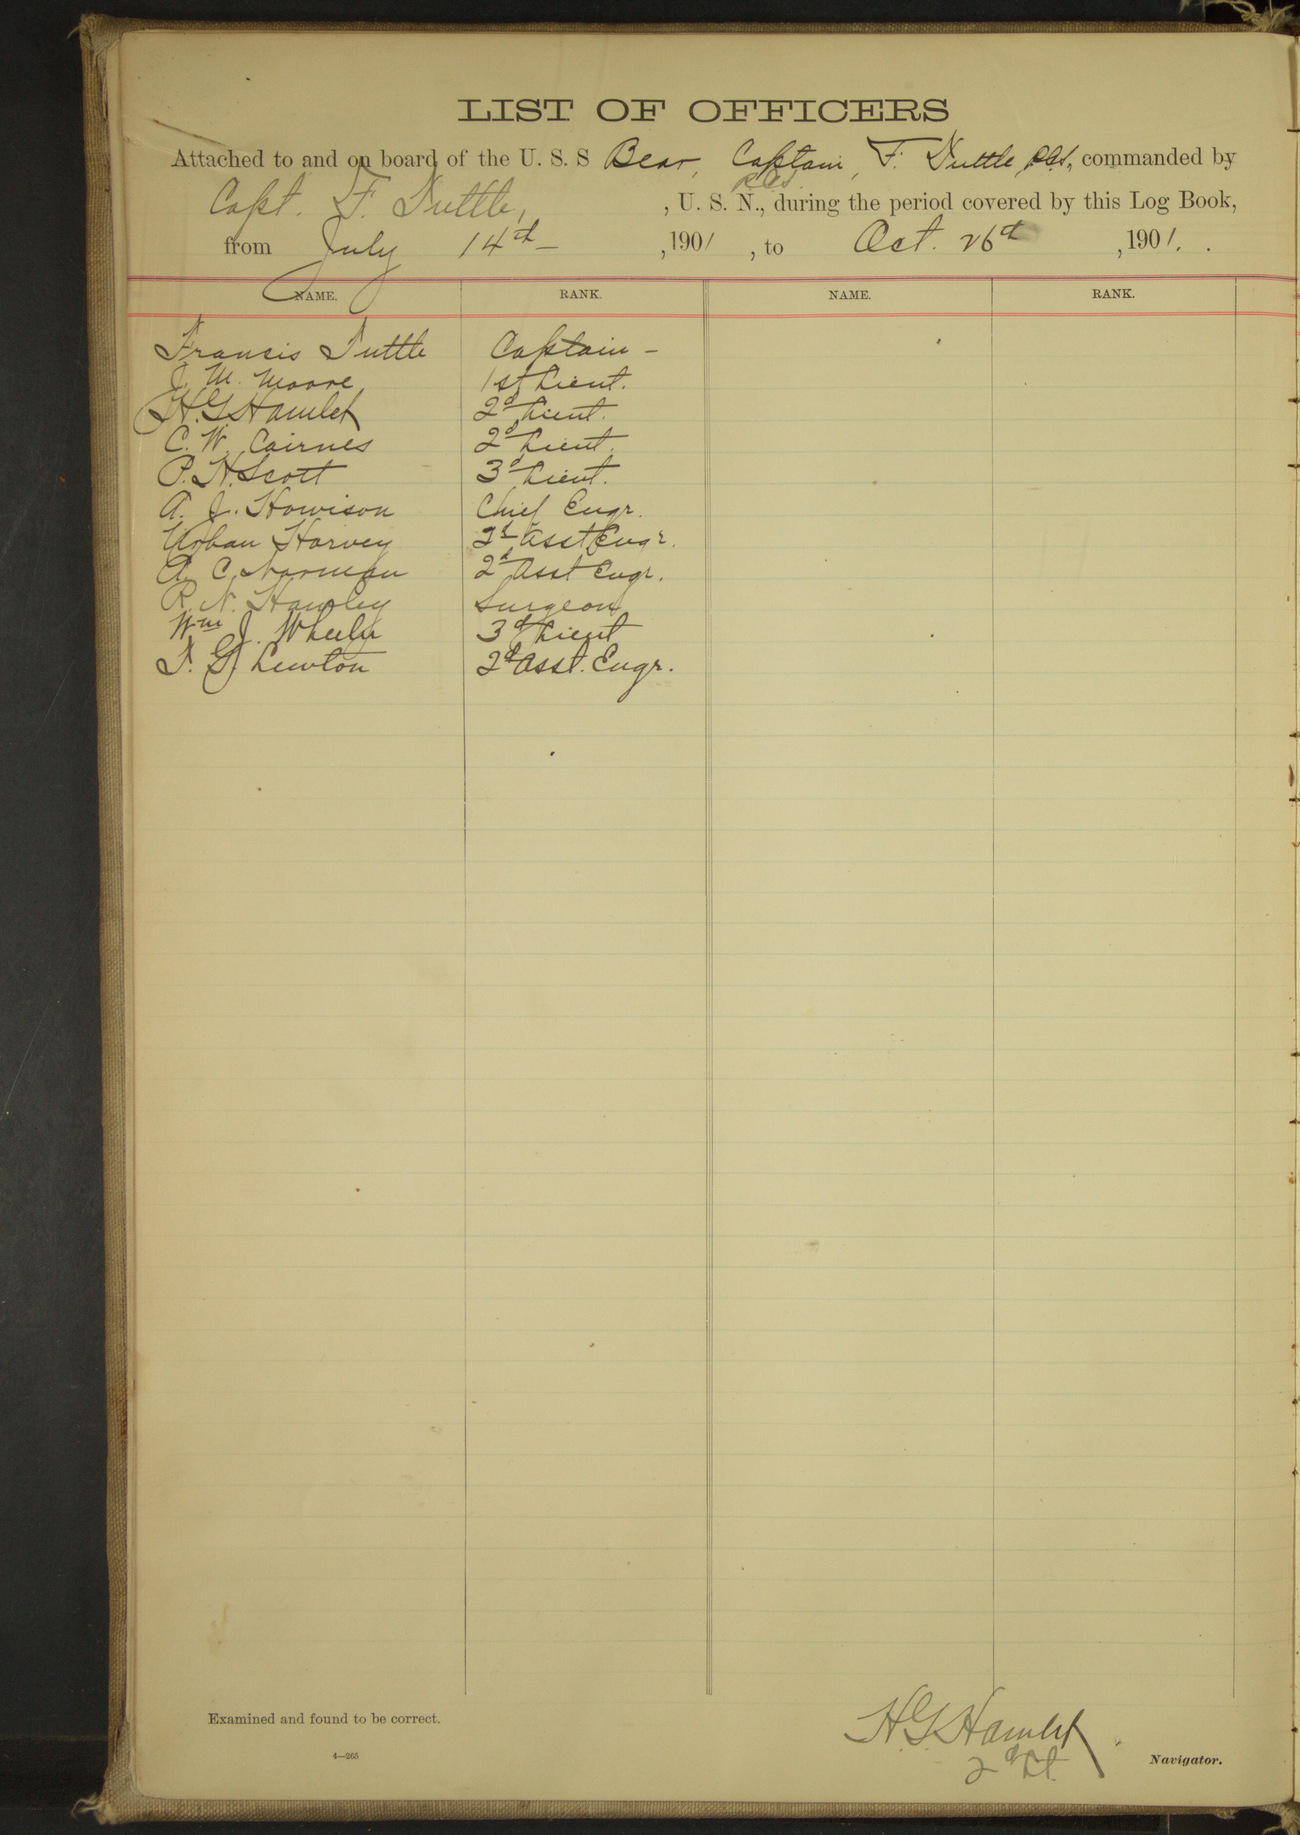 LIST OF OFFICERS
Attached to and on board of the U. S. S Bear, Captain, F. Tuttle, RCS, commanded by
Capt. F. Tuttle, RCS. , U. S. N., during the period covered by this Log Book,
from July 14th — , 1901 , to Oct. 26th , 1901. .
NAME. RANK. NAME. RANK.
Francis Tuttle Captain —
J. M. Moore 1st Lieut.
H.G. Hamlet 2d Lieut.
C. W. Cairnes 2d Lieut.
P. H. Scott 3d Lieut.
A. J. Howison Chief Engr.
Urban Harvey Asst Engr.
A. C. Norman 2d Asst Engr.
R. N. Hawley Surgeon
Wm J. Wheeler 3d Lieut
T. G. Lewton 2d Asst. Engr.
Examined and found to be correct.
H.G. Hamlet
2d Lt.
Navigator.
4—265